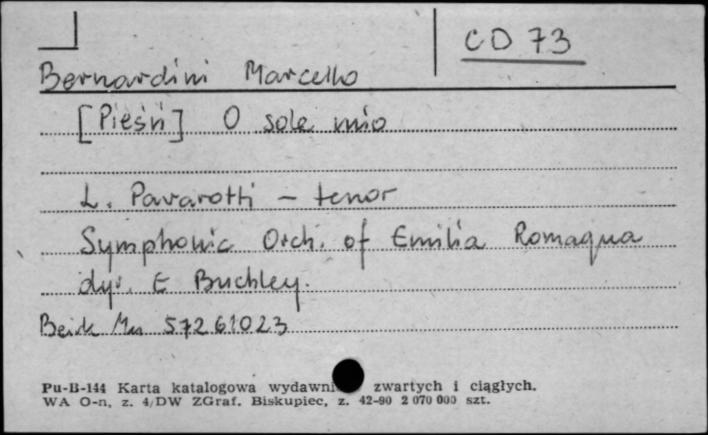 CD 73
Bernardini Marcello
[Pieśń] O sole mio
L. Pavarotti - tenor
Symphonic Orch. of Emilia Romagna
dyr. E Buchley.
57261023
Pu-B-144 Karta katalogowa zwartych i ciągłych.
WA O-n, z. 4/DW ZGraf. Biskupiec, z. 42-90 2 070 000 szt.